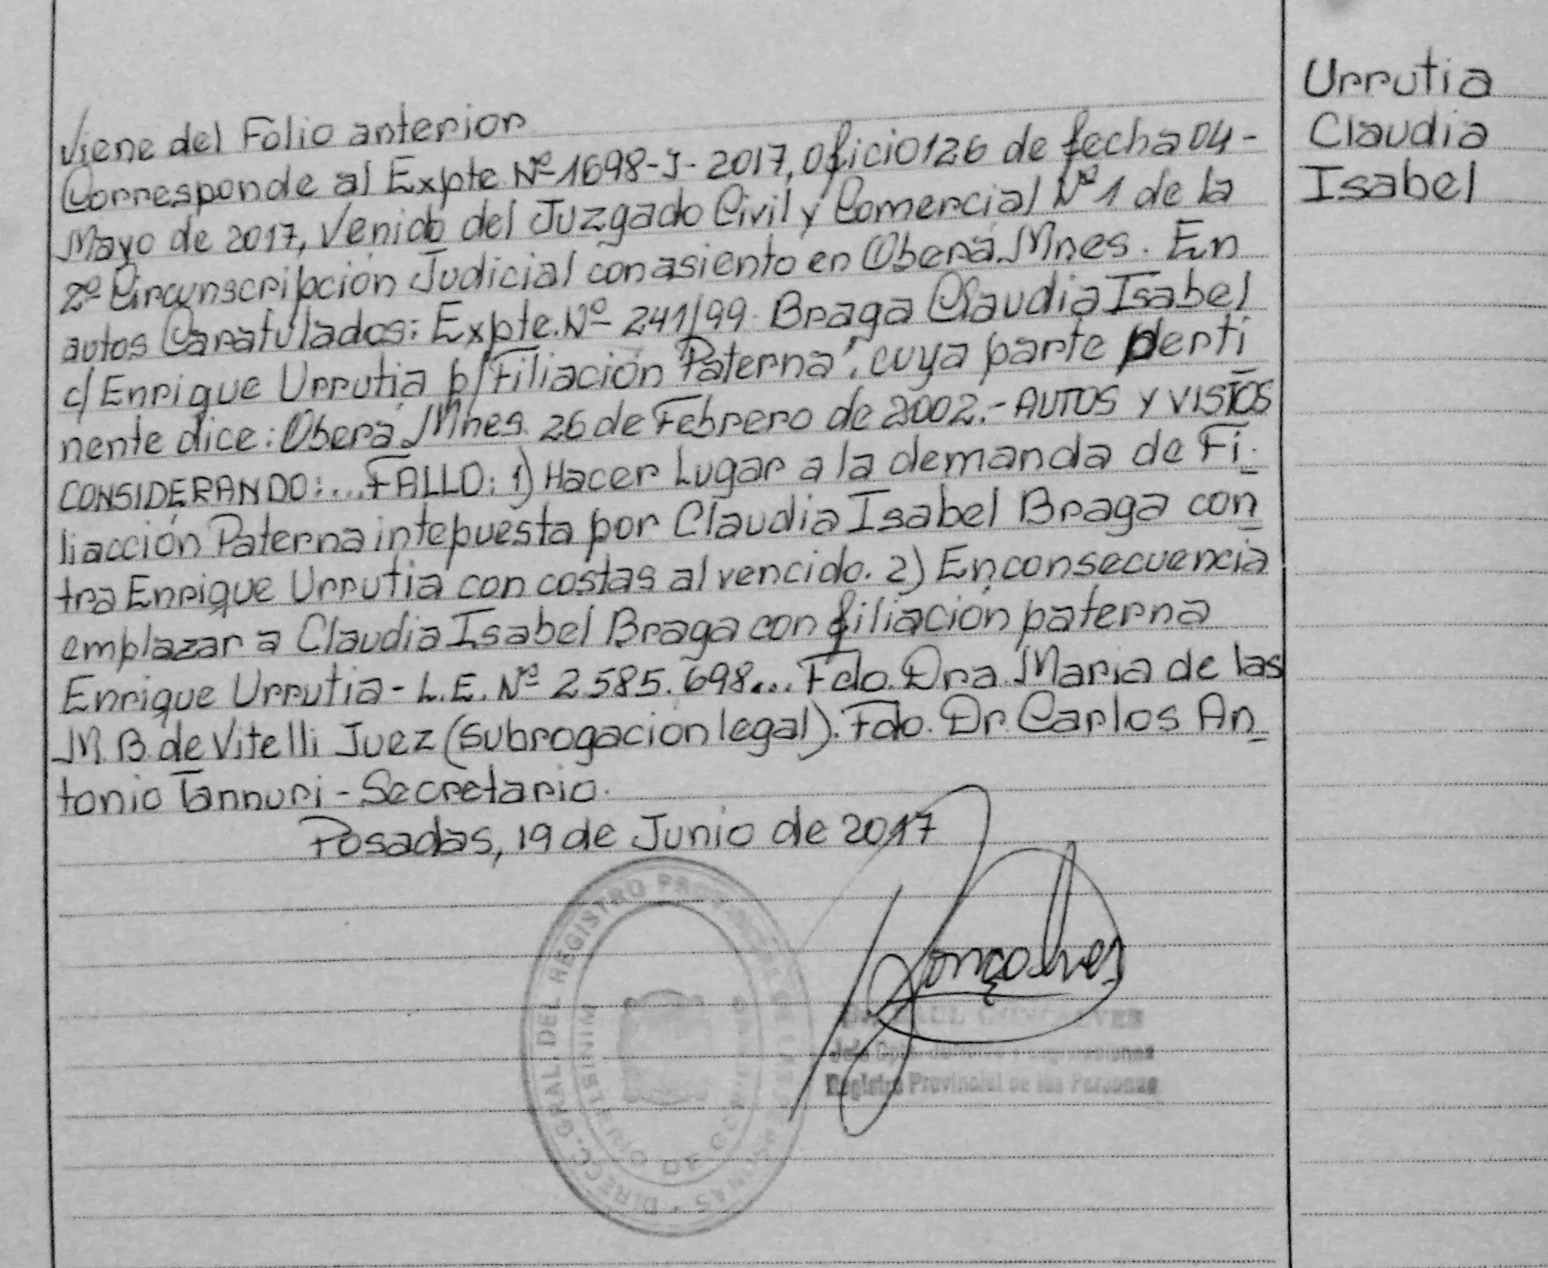 Viene del Folio anterior
Corresponde al Expte Nº 1698-J-2017, Oficio 126 de fecha 04-
Mayo de 2017, Venido del Juzgado Civil y Comercial Nº 1 de la
2º Circunscripción Judicial con asiento en Oberá. Mnes. En
autos Caratulados: Expte. Nº 241/99. Braga Claudia Isabel
c/ Enrique Urrutia p/ Filiación Paterna", cuya parte perti
nente dice: Oberá Mnes. 26 de Febrero de 2002.- AUTOS Y VISTOS
CONSIDERANDO:... FALLO: 1) Hacer Lugar a la demanda de Fi-
liacción Paterna intepuesta por Claudia Isabel Braga con
tra Enrique Urrutia con costas al vencido. 2) En consecuencia
emplazar a Claudia Isabel Braga con filiación paterna
Enrique Urrutia - L.E. Nº 2.585.698... Fdo. Dra. Maria de las
M.B. de Vitelli Juez (subrogacion legal). Fdo. Dr. Carlos An
tonio Tannuri - Secretario.
Posadas, 19 de Junio de 2017
Urrutia
Claudia
Isabel
Gonçalves
DIRECC. GRAL. DEL REGISTRO PROVINCIAL DE LAS PERSONAS
MINISTERIO DE GOBIERNO
RAUL GONCALVES
Registro Provincial de las Personas